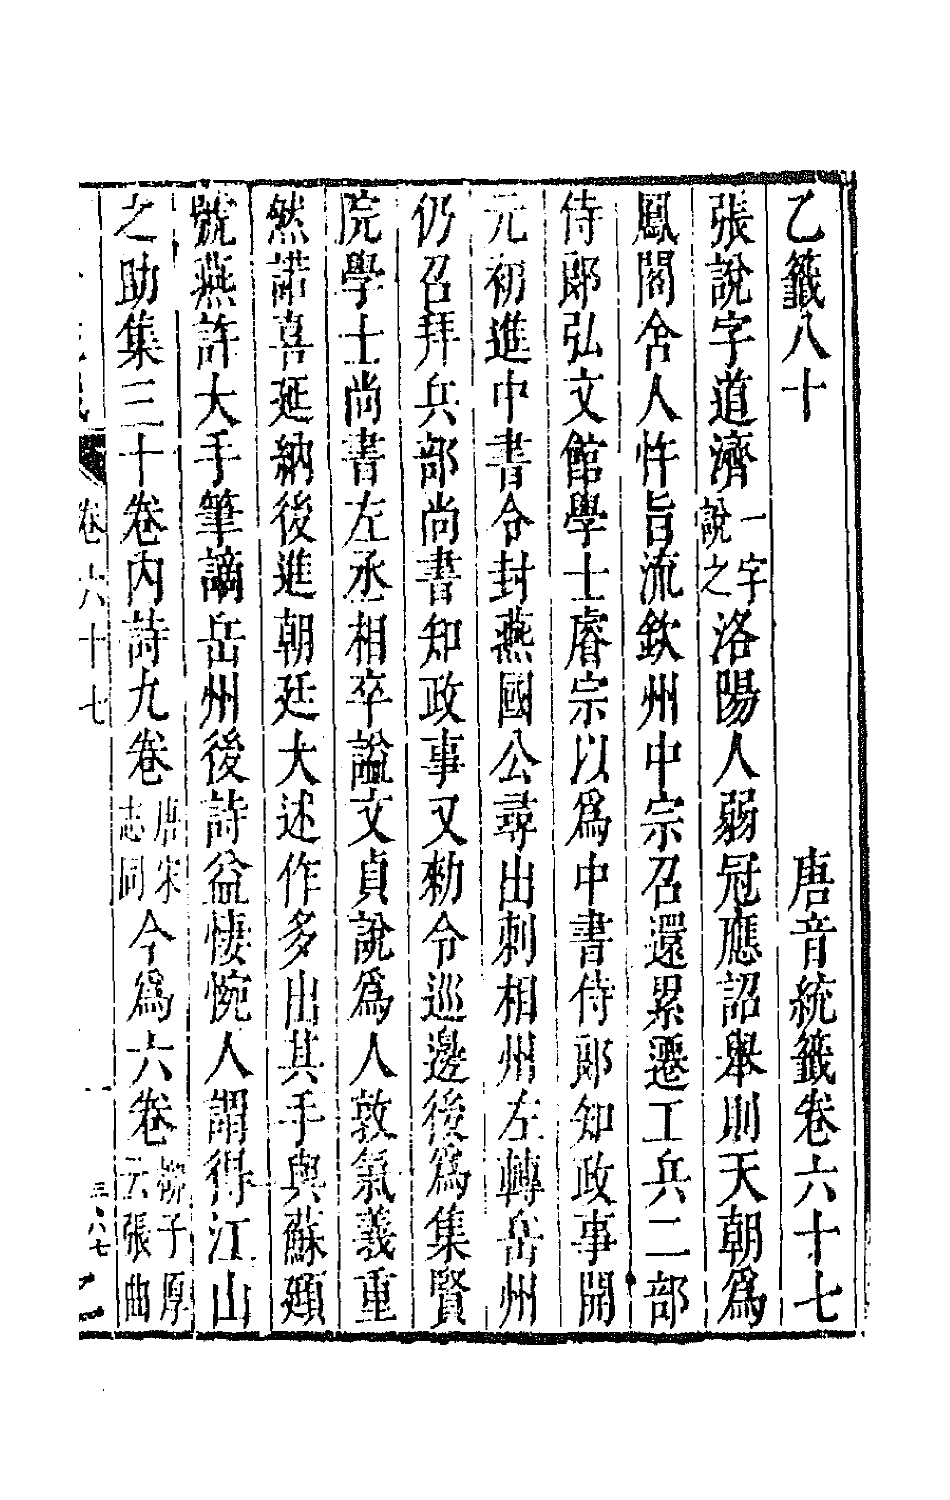 乙籤八十　唐音統籤卷六十七
張說字道濟一字說之洛陽人弱冠應詔舉則天朝爲
鳳閣舍人忤旨流欽州中宗召還累遷工兵二部
侍郎弘文館學士睿宗以爲中書侍郎知政事開
元初進中書令封燕國公尋出刺相州左轉岳州
仍召拜兵部尚書知政事又勑令巡邊後爲集賢
院學士尚書左丞相卒謚文貞說爲人敦氣義重
然諾喜延納後進朝廷大述作多出其手與蘇頲
號燕許大手筆謫岳州後詩益悽惋人謂得江山
之助集三十卷內詩九卷唐宋志同今爲六卷柳子厚云張曲
卷六十七